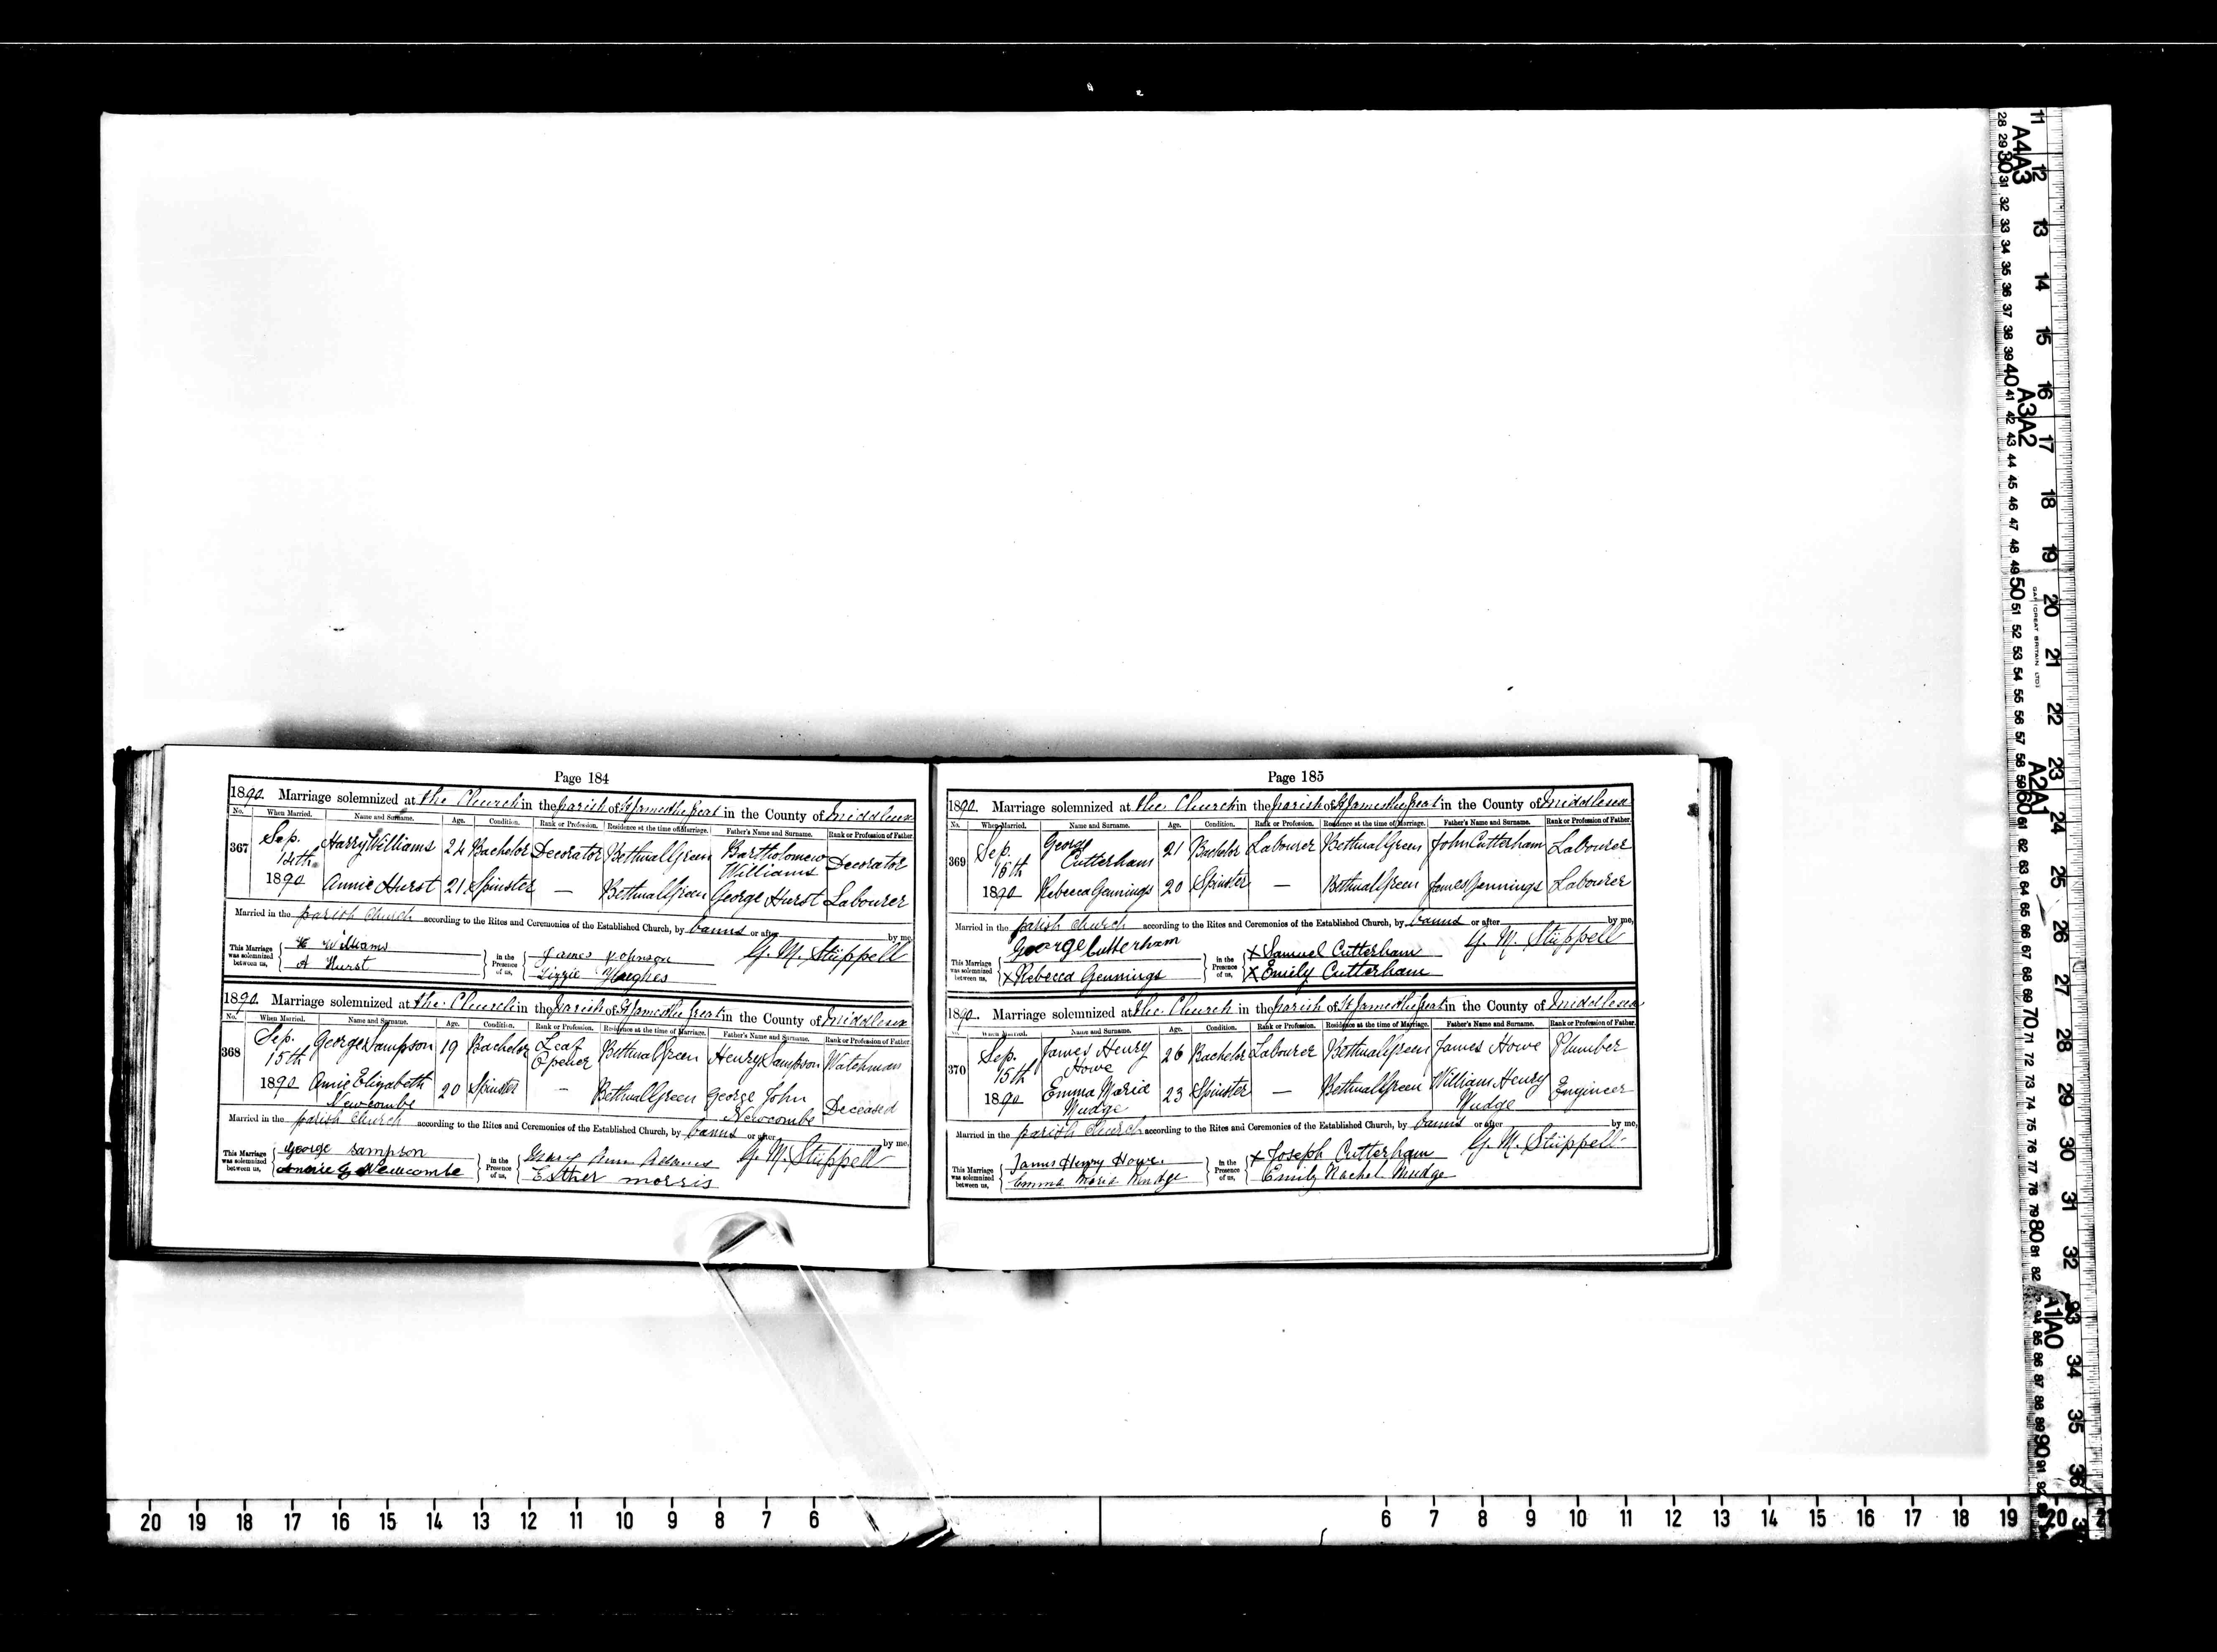 Page 184
1890. Marriage solemnized at the Church in the parish of St James the Great in the County of Middlesex
No. When Married. Name and Surname. Age. Condition. Rank or Profession. Residence at the time of Marriage. Father's Name and Surname. Rank or Profession of Father.
367 Sep. 14th 1890 Harry Williams 24 Bachelor Decorator Bethnal Green Bartholomew Williams Decorator
Annie Hurst 21 Spinster — Bethnal Green George Hurst Labourer
Married in the parish Church according to the Rites and Ceremonies of the Established Church, by banns or after by me,
This Marriage was solemnized between us, H Williams in the Presence of us, James Johnson G. M. Stüppell
A Hurst Lizzie Hughes
1890. Marriage solemnized at the Church in the parish of St James the Great in the County of Middlesex
No. When Married. Name and Surname. Age. Condition. Rank or Profession. Residence at the time of Marriage. Father's Name and Surname. Rank or Profession of Father.
368 Sep. 15th 1890 George Sampson 19 Bachelor Leaf Opener Bethnal Green Henry Sampson Watchman
Annie Elizabeth Newcombe 20 Spinster — Bethnal Green George John Newcombe Deceased
Married in the parish Church according to the Rites and Ceremonies of the Established Church, by banns or after by me,
This Marriage was solemnized between us, George Sampson in the Presence of us, Mary Ann Adams G. M. Stüppell
Annie Newcombe Esther morris
Page 185
1890. Marriage solemnized at the Church in the parish of St James the Great in the County of Middlesex
No. When Married. Name and Surname. Age. Condition. Rank or Profession. Residence at the time of Marriage. Father's Name and Surname. Rank or Profession of Father.
369 Sep. 15th 1890 George Cutterham 21 Bachelor Labourer Bethnal Green John Cutterham Labourer
Rebecca Gennings 20 Spinster — Bethnal Green James Gennings Labourer
Married in the parish Church according to the Rites and Ceremonies of the Established Church, by banns or after by me,
This Marriage was solemnized between us, George Cutterham in the Presence of us, X Samuel Cutterham G. M. Stüppell
X Rebecca Gennings X Emily Cutterham
1890. Marriage solemnized at the Church in the parish of St James the Great in the County of Middlesex
No. When Married. Name and Surname. Age. Condition. Rank or Profession. Residence at the time of Marriage. Father's Name and Surname. Rank or Profession of Father.
370 Sep. 15th 1890 James Henry Howe 26 Bachelor Labourer Bethnal Green James Howe Plumber
Emma Maria Mudge 23 Spinster — Bethnal Green William Henry Mudge Engineer
Married in the parish Church according to the Rites and Ceremonies of the Established Church, by banns or after by me,
This Marriage was solemnized between us, James Henry Howe in the Presence of us, X Joseph Cutterham G. M. Stüppell
Emma Maria Mudge Emily Rachel Mudge
20 19 18 17 16 15 14 13 12 11 10 9 8 7 6 6 7 8 9 10 11 12 13 14 15 16 17 18 19 20
A4 A3
A3 A2
A2 A1
A1 A0